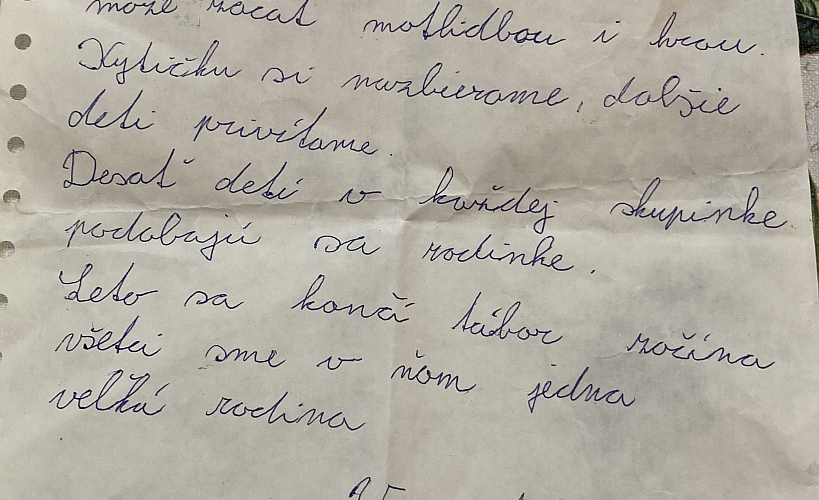 môže začať motlidbou i hrou.
Kytičku si nazbierame, ďalšie
deti privítame.
Desať detí v každej skupinke
podobajú sa rodinke.
Leto sa končí tábor začína
všetci sme v ňom jedna
veľká rodina